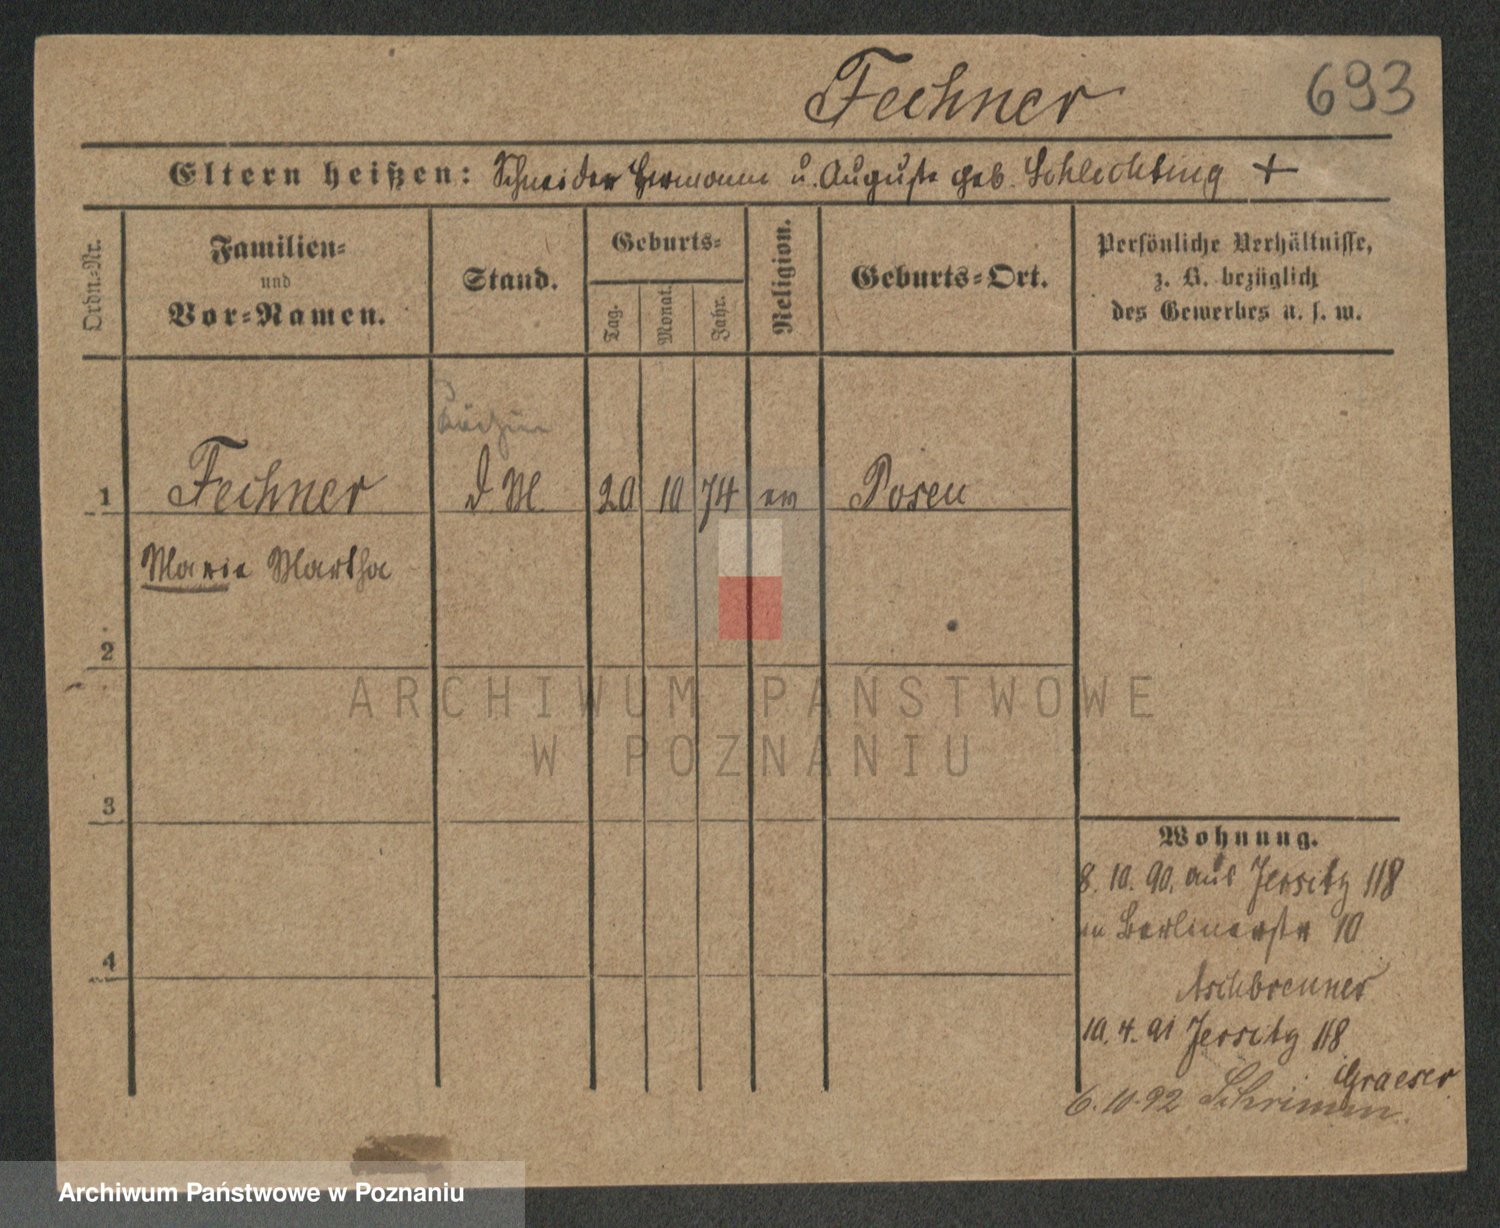 Fechner
693
Eltern heißen: Schneider Hermann u. Auguste geb. Schlechting +
Ordn.-Nr.
Familien-
und
Vor-Namen.
Stand.
Geburts-
Tag.
Monat.
Jahr.
Religion.
Geburts-Ort.
Persönliche Verhältnisse,
z. B. bezüglich
des Gewerbes u. s. w.
Köchin
1 Fechner d. M. 20 10 74 ev Posen
Marie Martha
2
3
4
Wohnung.
8. 10. 90. aus Jersitz 118
Berlinerstr 10
Aschbrenner
10. 4. 91 Jersitz 118
Graeser
6. 10. 92 Schrimm.
ARCHIWUM PAŃSTWOWE
W POZNANIU
Archiwum Państwowe w Poznaniu